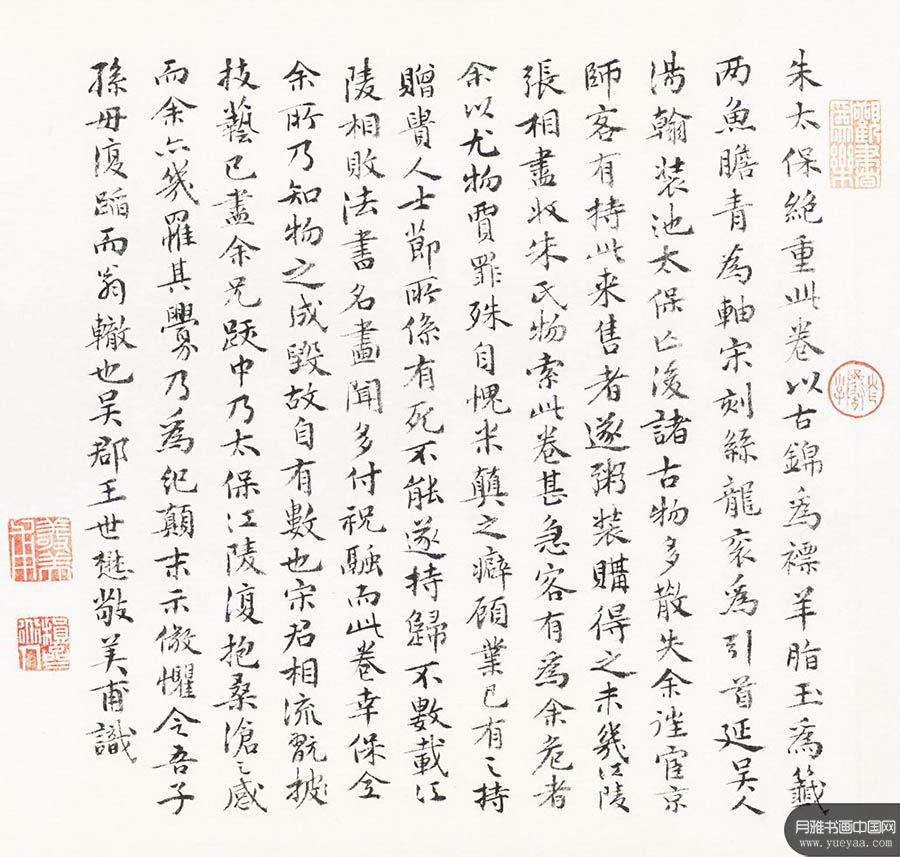 朱太保絶重此卷以古錦為褾羊脂玉為籤
两魚膽青為軸宋刻絲龍衮為引首延吳人
湯翰装池太保亡後諸古物多散失余往宦京
師客有持此来售者遂粥装購得之未幾江陵
張相盡收朱氏物索此卷甚急客有為余危者
余以尤物賈罪殊自愧米顛之癖顧業已有之持
贈貴人士節所係有死不能遂持歸不數載江
陵相敗法書名畫聞多付祝融而此卷幸保全
余所乃知物之成毀故自有數也宋君相流翫披
技藝已盡余兄跋中乃太保江陵復抱桑滄之感
而余亦幾罹其釁乃為紀顛末示儆懼令吾子
孫毋復蹈而翁轍也吳郡王世懋敬美甫識
觀書為樂
敬美
月雅书画中国网
www.yueyaa.com